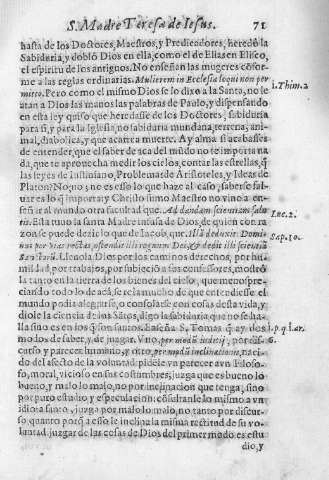 S. Madre Teresa de Iesus. 71
hasta de los Doctores, Maestros, y Predicadores, heredò la
Sabiduria, y doblò Dios en ella, como el de Elias en Eliseo,
el espiritu de los antiguos. No enseñan las mugeres cõfor-
me a las reglas ordinarias. Mulierem in Ecclesia loqui non per
mitto. Pero como el mismo Dios se lo dixo a la Santa, no le
1. Thim. 2
atan a Dios las manos las palabras de Paolo, y dispensando
en esta ley quiso que heredasse de los Doctores, sabiduria
para si, y para la Iglesia, no sabiduria mundana, terrena, ani-
mal, diabolica, y que acarrea muerte. Ay alma si acabasses
de entender, que el saber de aca del mũdo no te importa na
da, que te aprovecha medir los cielos, contar las estrellas, q̃
las leyes de Iustiniano, Problemas de Aristoteles, y Ideas de
Platon? No, no, no es esso lo que haze al caso, saberse sal-
uar es lo q̃ importa, y Christo sumo Maestro no vino a en-
señar al mundo otra facultad que. Ad dandam scientiam salu
tis. Esta tuuo la Santa Madre Teresa de Iesus, de quien con ra
Luc. 2.
zon se puede dezir lo que de Iacob, que. Illã deduxit Domi-
nus per vias rectas, ostendit illi regnum Dei, & dedit illi scientiã
Sap. 10.
Sanctorũ. Lleuola Dios por los caminos derechos, por hu-
mildad, por trabajos, por subjeciõ a sus confessores, mostrò
la tanto en la tierra de los bienes del cielo, que menospre-
ciando todo lo de acà se rie la mucho de que entendiesse el
mundo podia alegrarse, o consolarse con cosas desta vida, y
diole la ciencia de los Sãtos, digo la sabiduria que no se ha-
lla sino es en los q̃ son santos. Enseña S. Tomas q̃ ay dos
1. p. q. 1. ar.
modos de saber, y de juzgar. Vno, per modũ iudicij, por dis-
6.
curso y parecer humano, y otro, per modũ inclinationis, naci-
do del afecto de la voluntad: pidele vn parecer a vn Filoso-
fo, moral, vicioso en sus costumbres, juzga que es bueno lo
bueno, y malo lo malo, no por inclinacion que tenga, sino
por puro estudio y especulacion: cõsultanle lo mismo a vn
idiota santo, juzga por malo lo malo, no tanto por discur-
so, quanto porq̃ a esso le inclina la misma rectitud de su vo-
luntad. juzgar de las cosas de Dios del primer modo es estu
dio, y